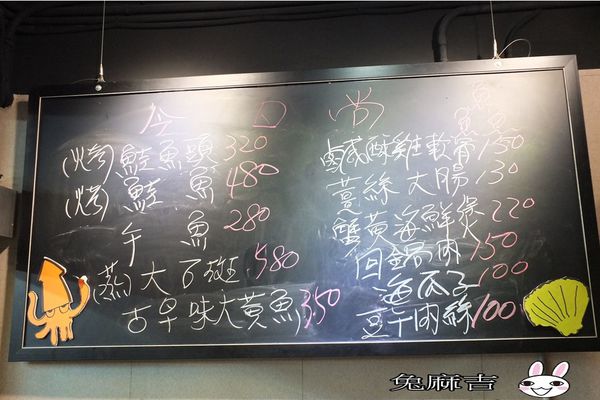 今日尚魚
(烤)鮭魚頭320
(烤)鮭魚480
午魚280
(蒸)大石斑580
古早味大黃魚350
鹹酥雞軟骨150
薑絲大腸130
蟹黃海鮮煲220
回鍋肉150
海瓜子100
豆干肉絲100
兔麻吉